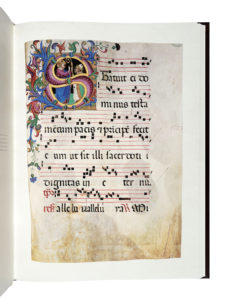 Statuit ei do
minus testa
mentum pacis et principē fecit
eum ut sit illi sacerdotii
dignitas in eternu
alleluya